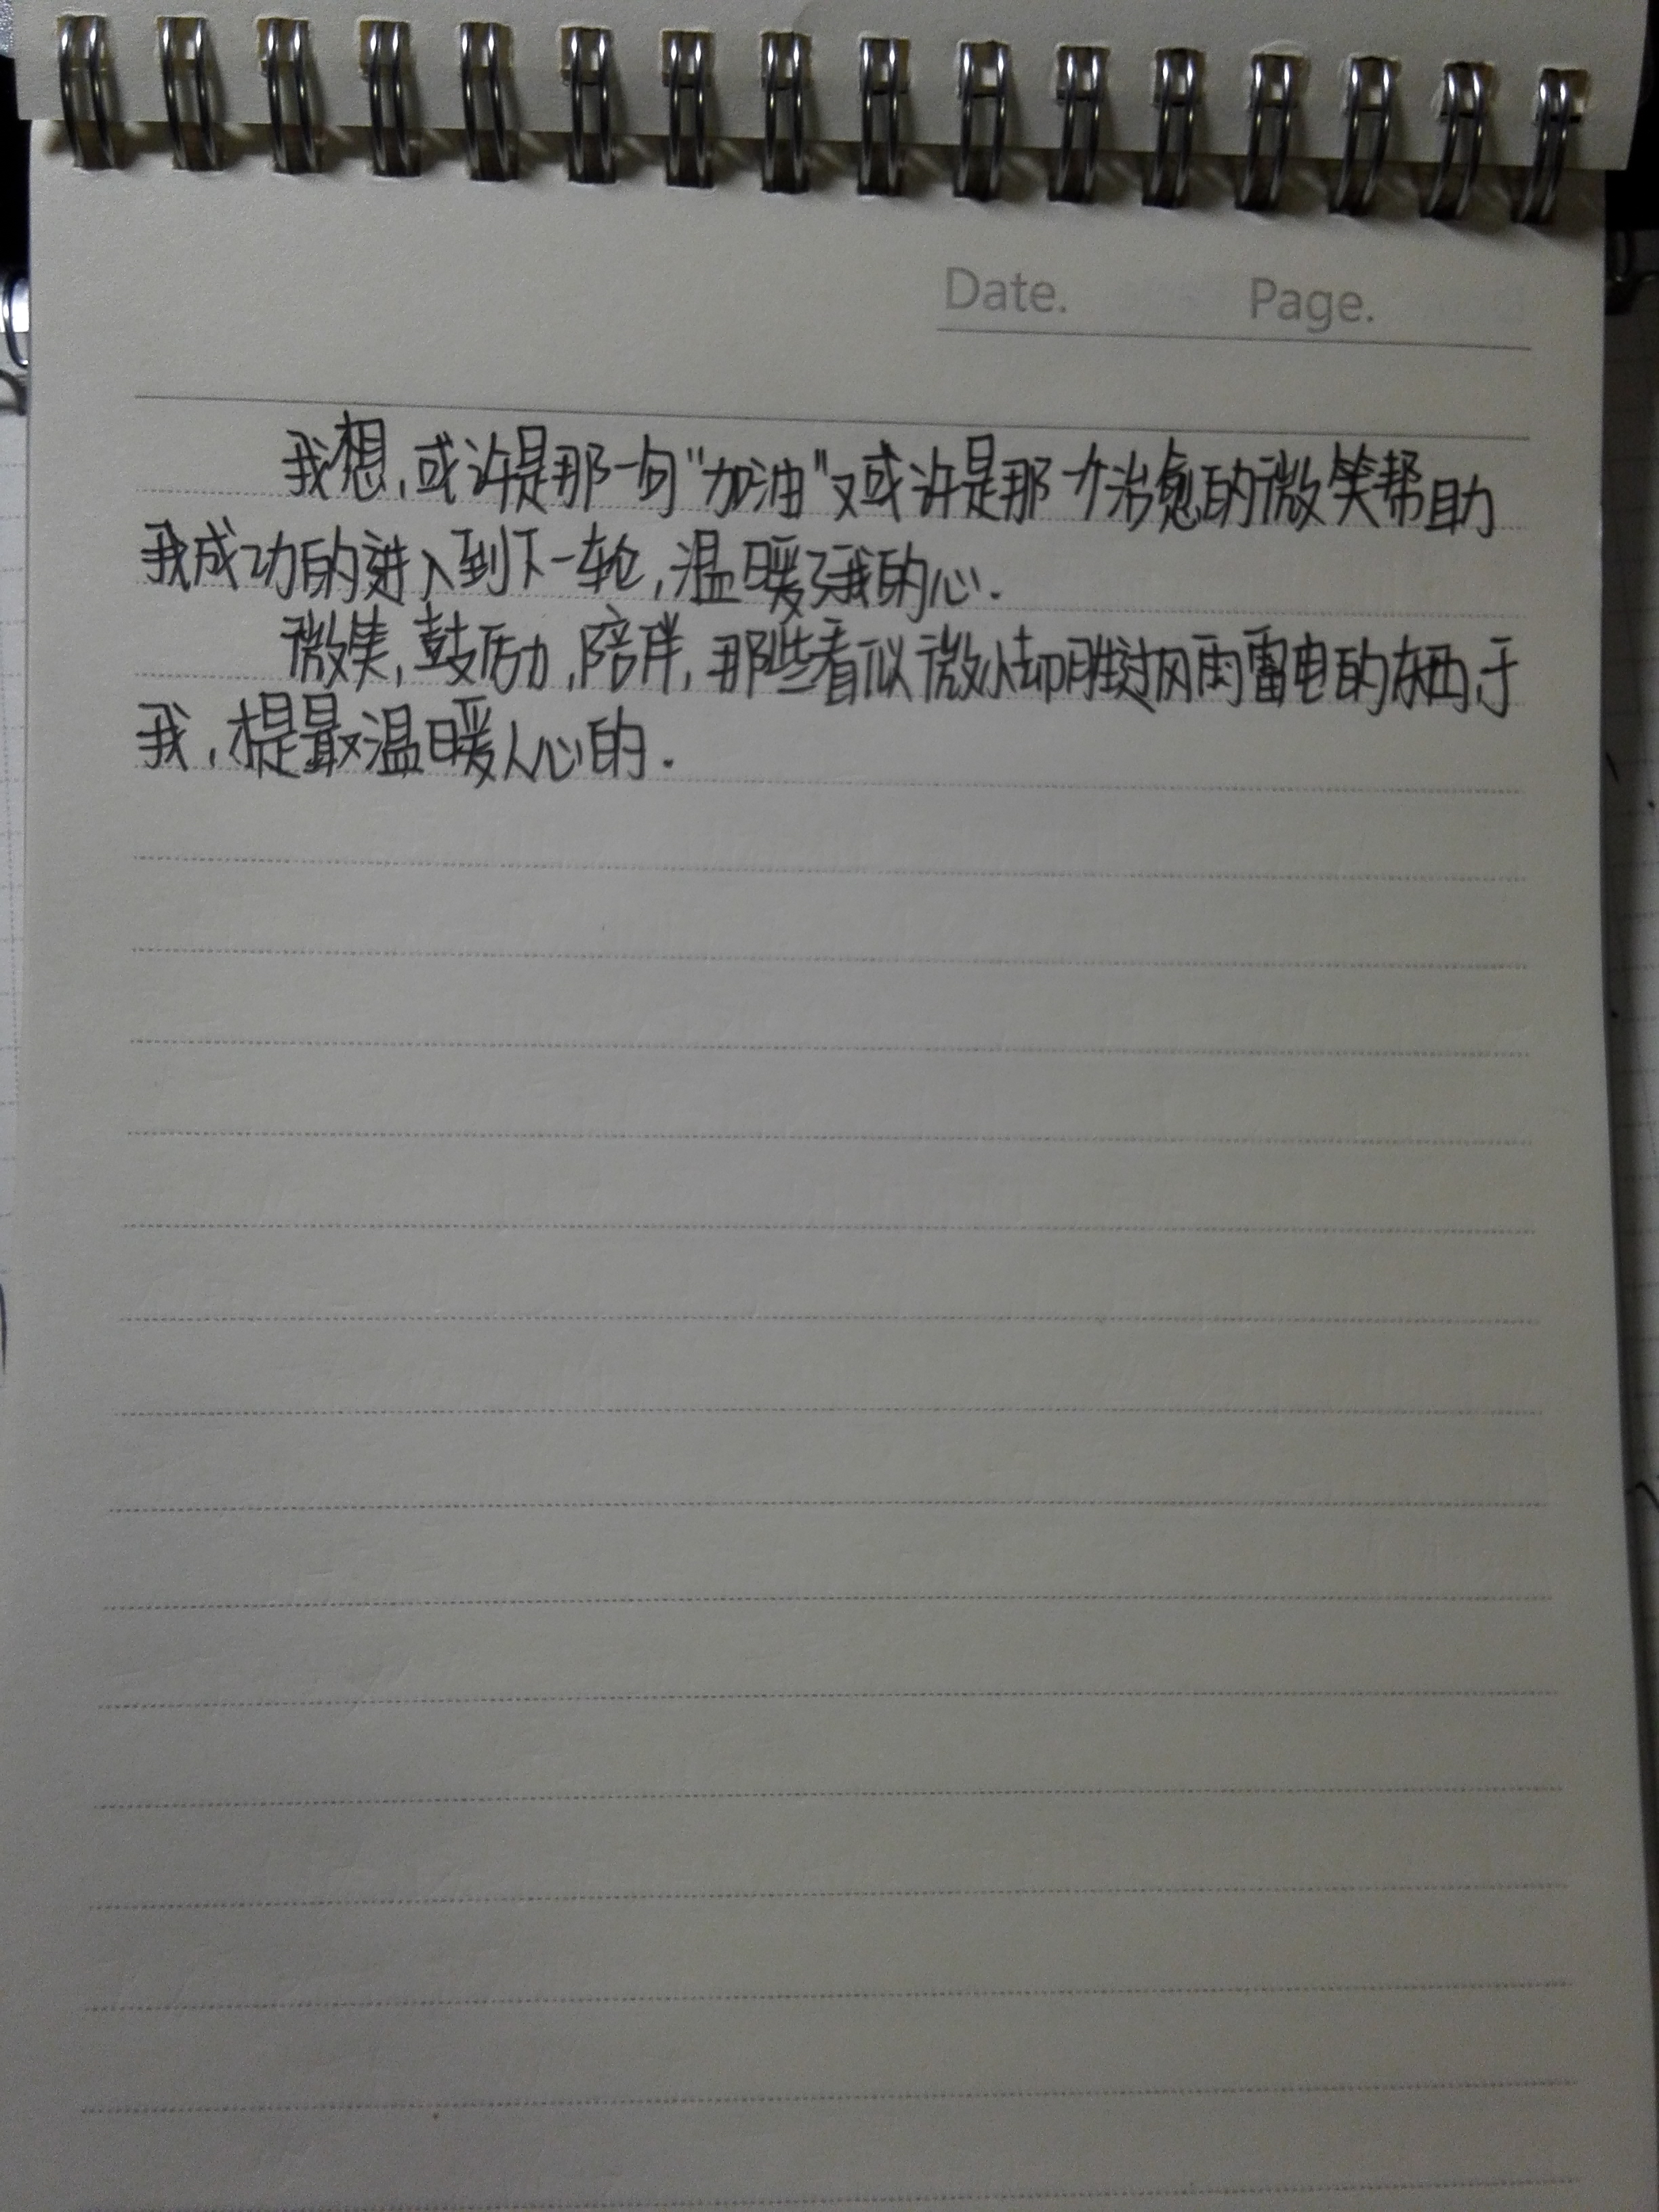 Date. Page.
我想,或许是那一句"加油"又或许是那个治愈的微笑帮助
我成功的进入到下一轮,温暖了我的心.
微笑,鼓励,陪伴,那些看似微小却胜过风雨雷电的东西,于
我,是最温暖人心的.